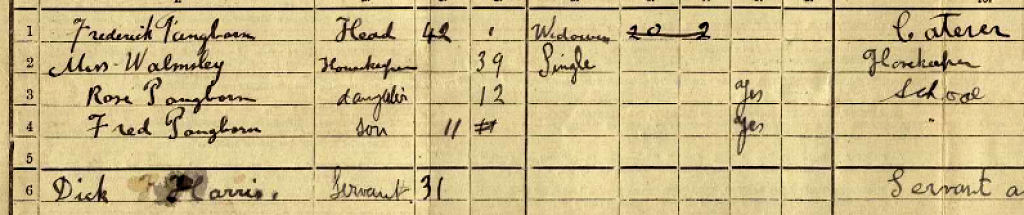 1 Frederick Pangborn Head 42 Widower 20 2 Caterer
2 Miss Walmsley Housekeeper 39 Single Hosekeeper
3 Rose Pangborn daughter 12 Yes School
4 Fred Pangborn son 11 Yes "
5
6 Dick Harris. Servant 31 Servant a